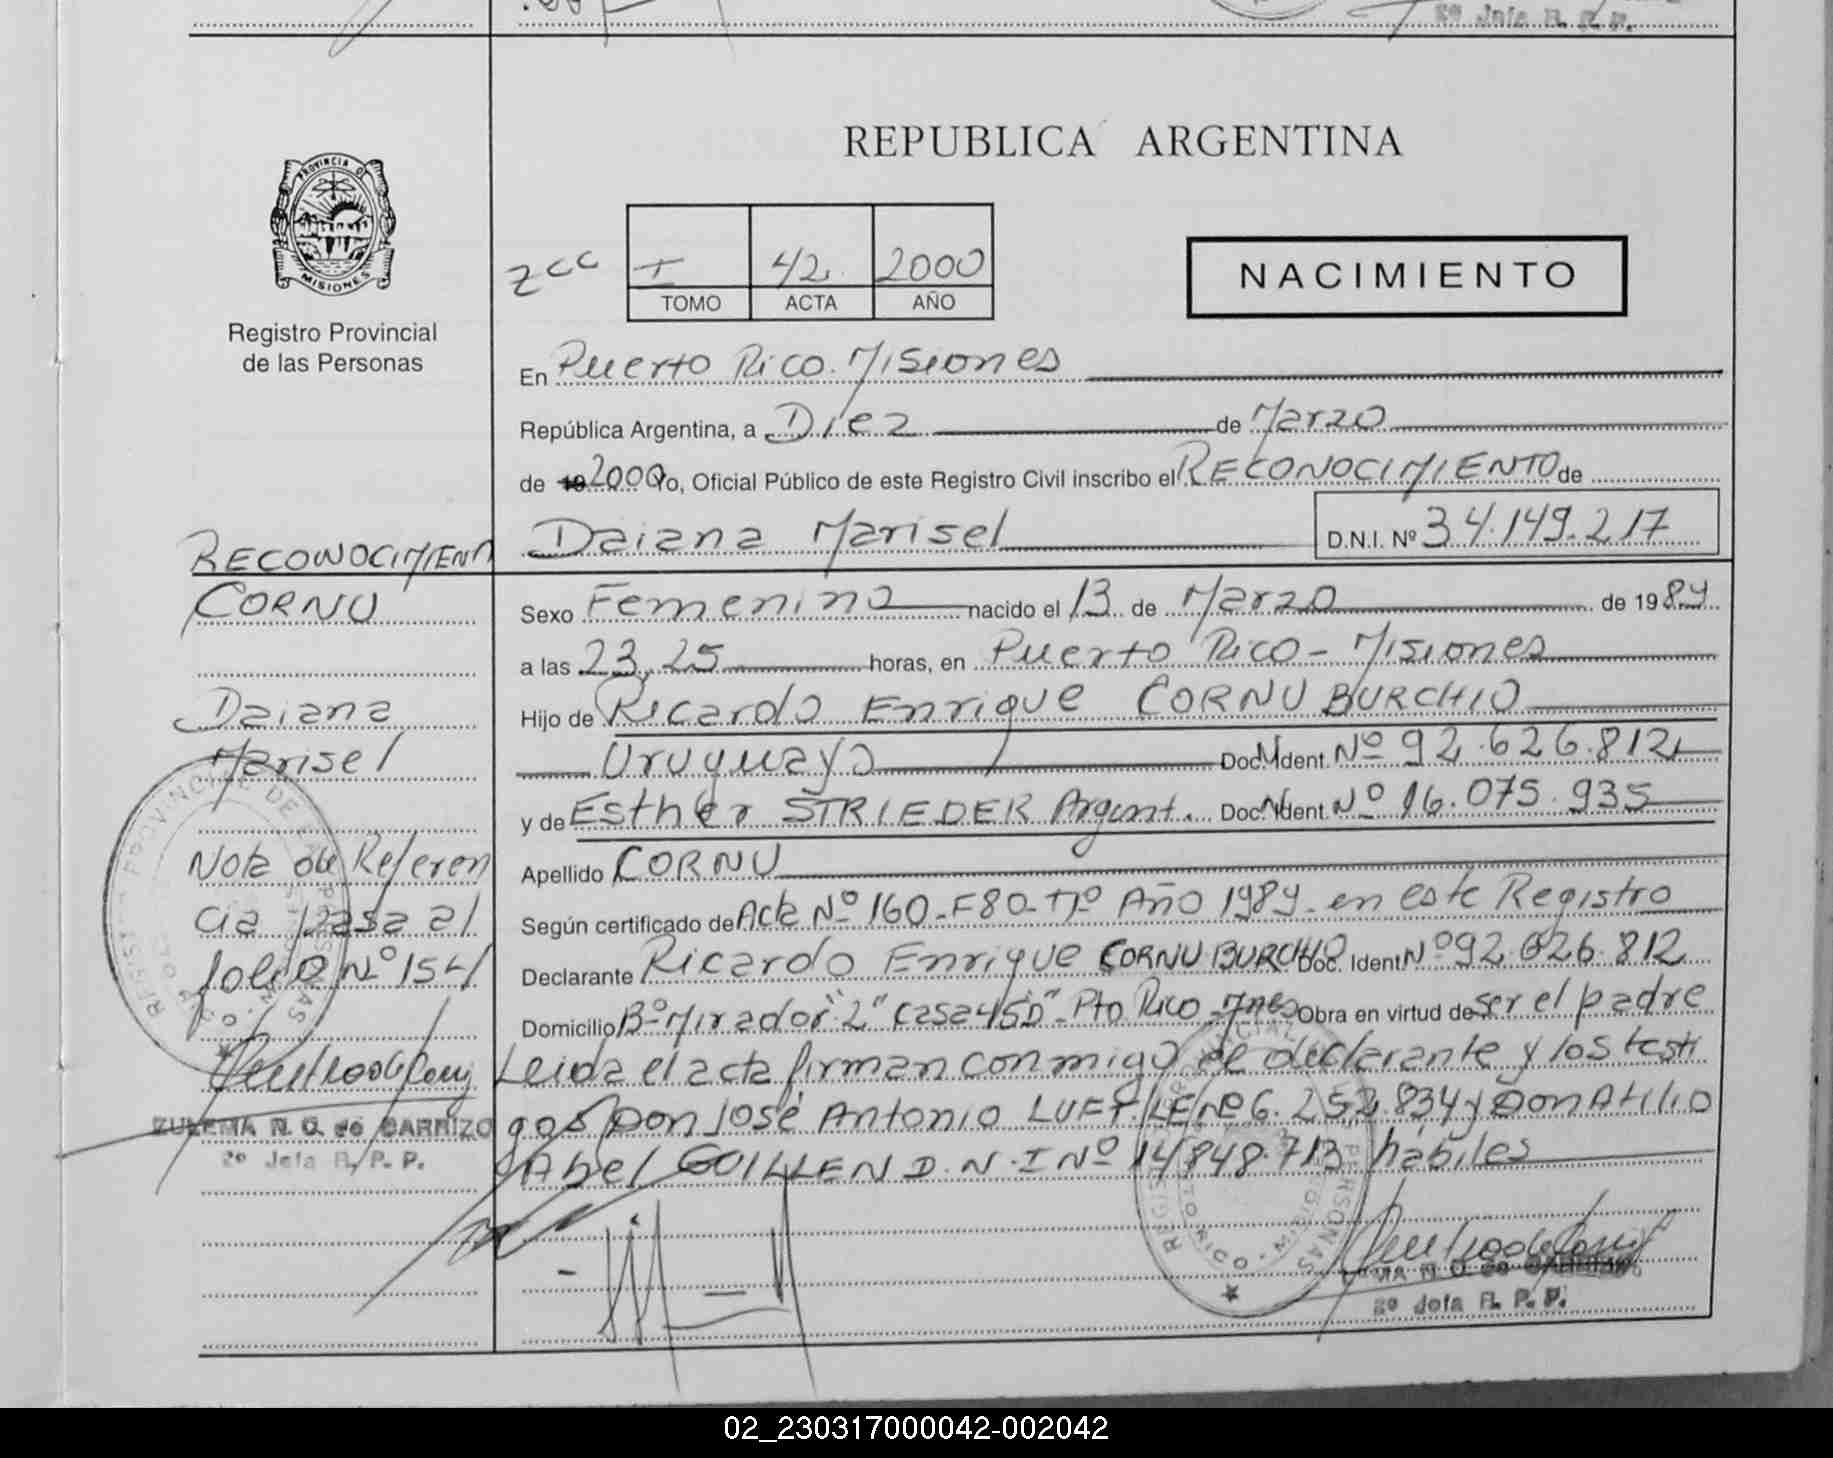 2º Jefa R. P. P.
REPUBLICA ARGENTINA
PROVINCIA D
MISIONES
Registro Provincial
de las Personas
zcc I 42 2000
TOMO ACTA AÑO
NACIMIENTO
En Puerto Rico. Misiones
República Argentina, a Diez de Marzo
de 19 2000 Yo, Oficial Público de este Registro Civil inscribo el RECONOCIMIENTO de
Daiana Marisel D.N.I. Nº 34.149.217
RECONOCIMIENT
CORNU
Daiana
Marisel
Nota de Referen
cia pasa al
folio Nº 154
ZULEMA N. O. de CARRIZO
2º Jefa R. P. P.
Sexo Femenino nacido el 13 de Marzo de 1989
a las 23,25 horas, en Puerto Rico - Misiones
Hijo de Ricardo Enrique CORNU BURCHIO
Uruguayo Doc. Ident. Nº 92.626.812
y de Esther STRIEDER Argent. Doc. Ident. Nº 16.075.935
Apellido CORNU
Según certificado de Acta Nº 160-F80-Tº Año 1989. en este Registro
Declarante Ricardo Enrique CORNU BURCHIO Doc. Ident Nº 92.626.812
Domicilio Bº Mirador "2" casa 45 "D" - Pto Rico - Mnes Obra en virtud de ser el padre
Leida el acta firman conmigo el declarante y los testi
gos Don José Antonio LUFT LE Nº 6.252.834 y Don Atilio
Abel GUILLEN D.N.I Nº 14.848.713 hábiles
MA N. O. de CARRIZO
2º Jefa R. P. P.
02_230317000042-002042